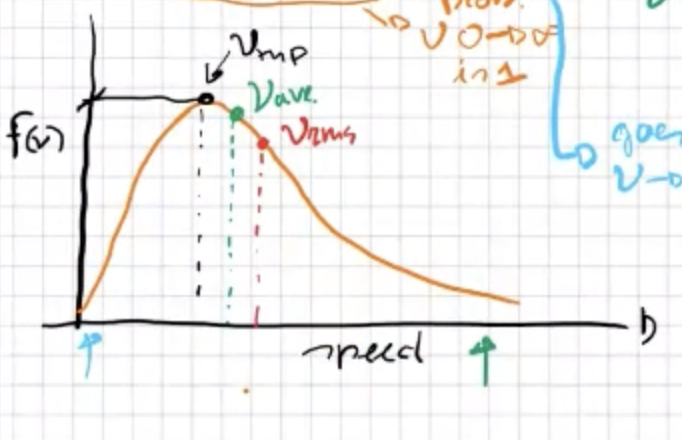 v 0→∞
in 1
v→
v mp
v ave.
v rms
f(v)
speed